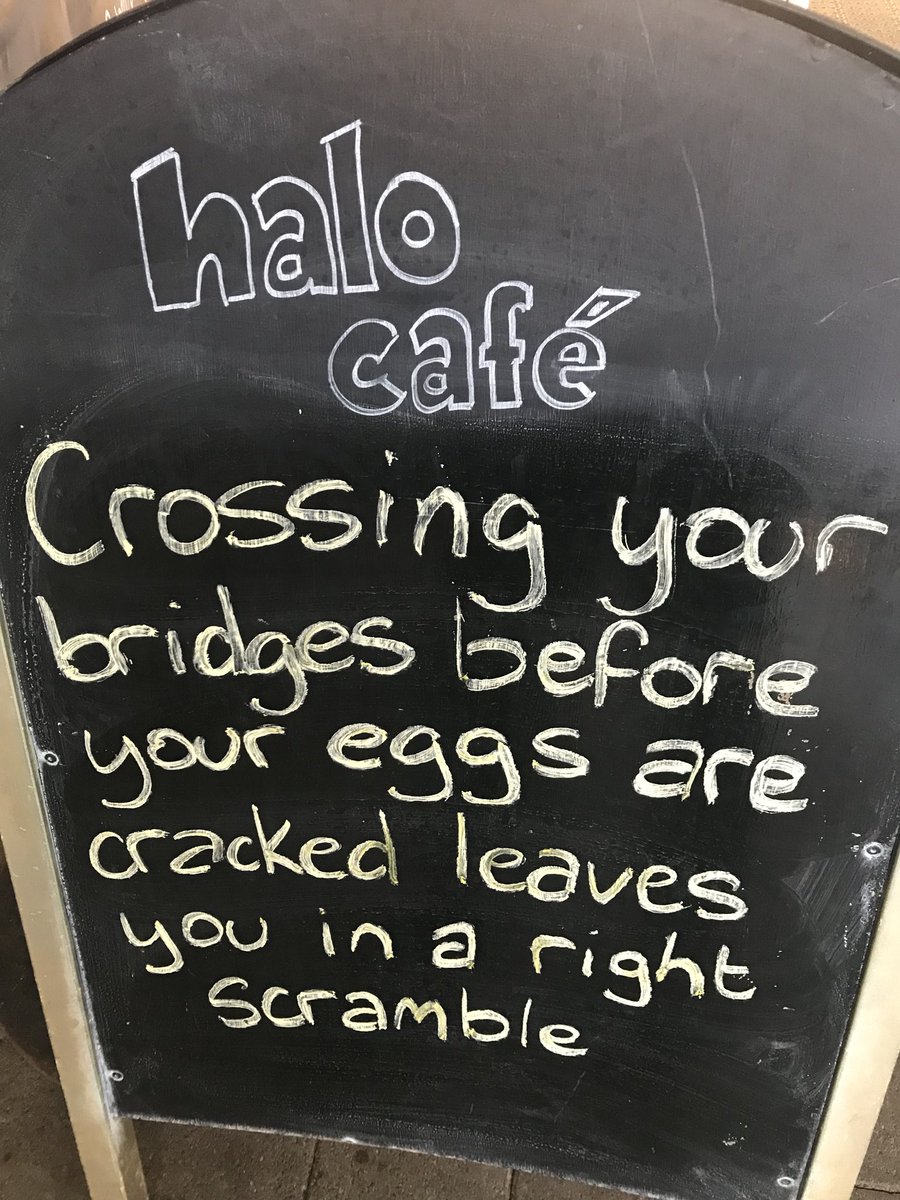 halo
café
Crossing your
bridges before
your eggs are
cracked leaves
you in a right
scramble